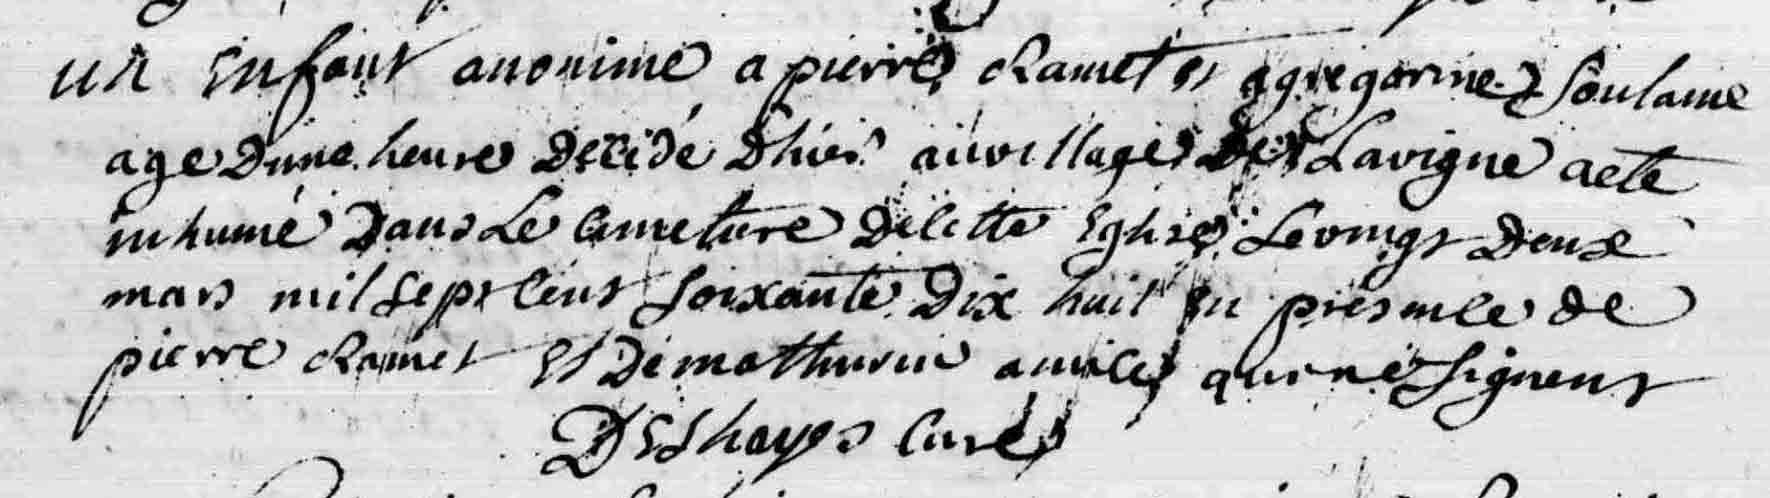 un enfant anonime a pierre chamet et a gregorine Soulaine
age dune heure decidé dhier au village de Lavigne a ete
inhumé dans Le cimetiere de cette Eglise Le vingt deux
mars mil sept cent soixante dix huit en presence de
pierre chamet et de mathurin amice qui ne signent
Deshayes curé